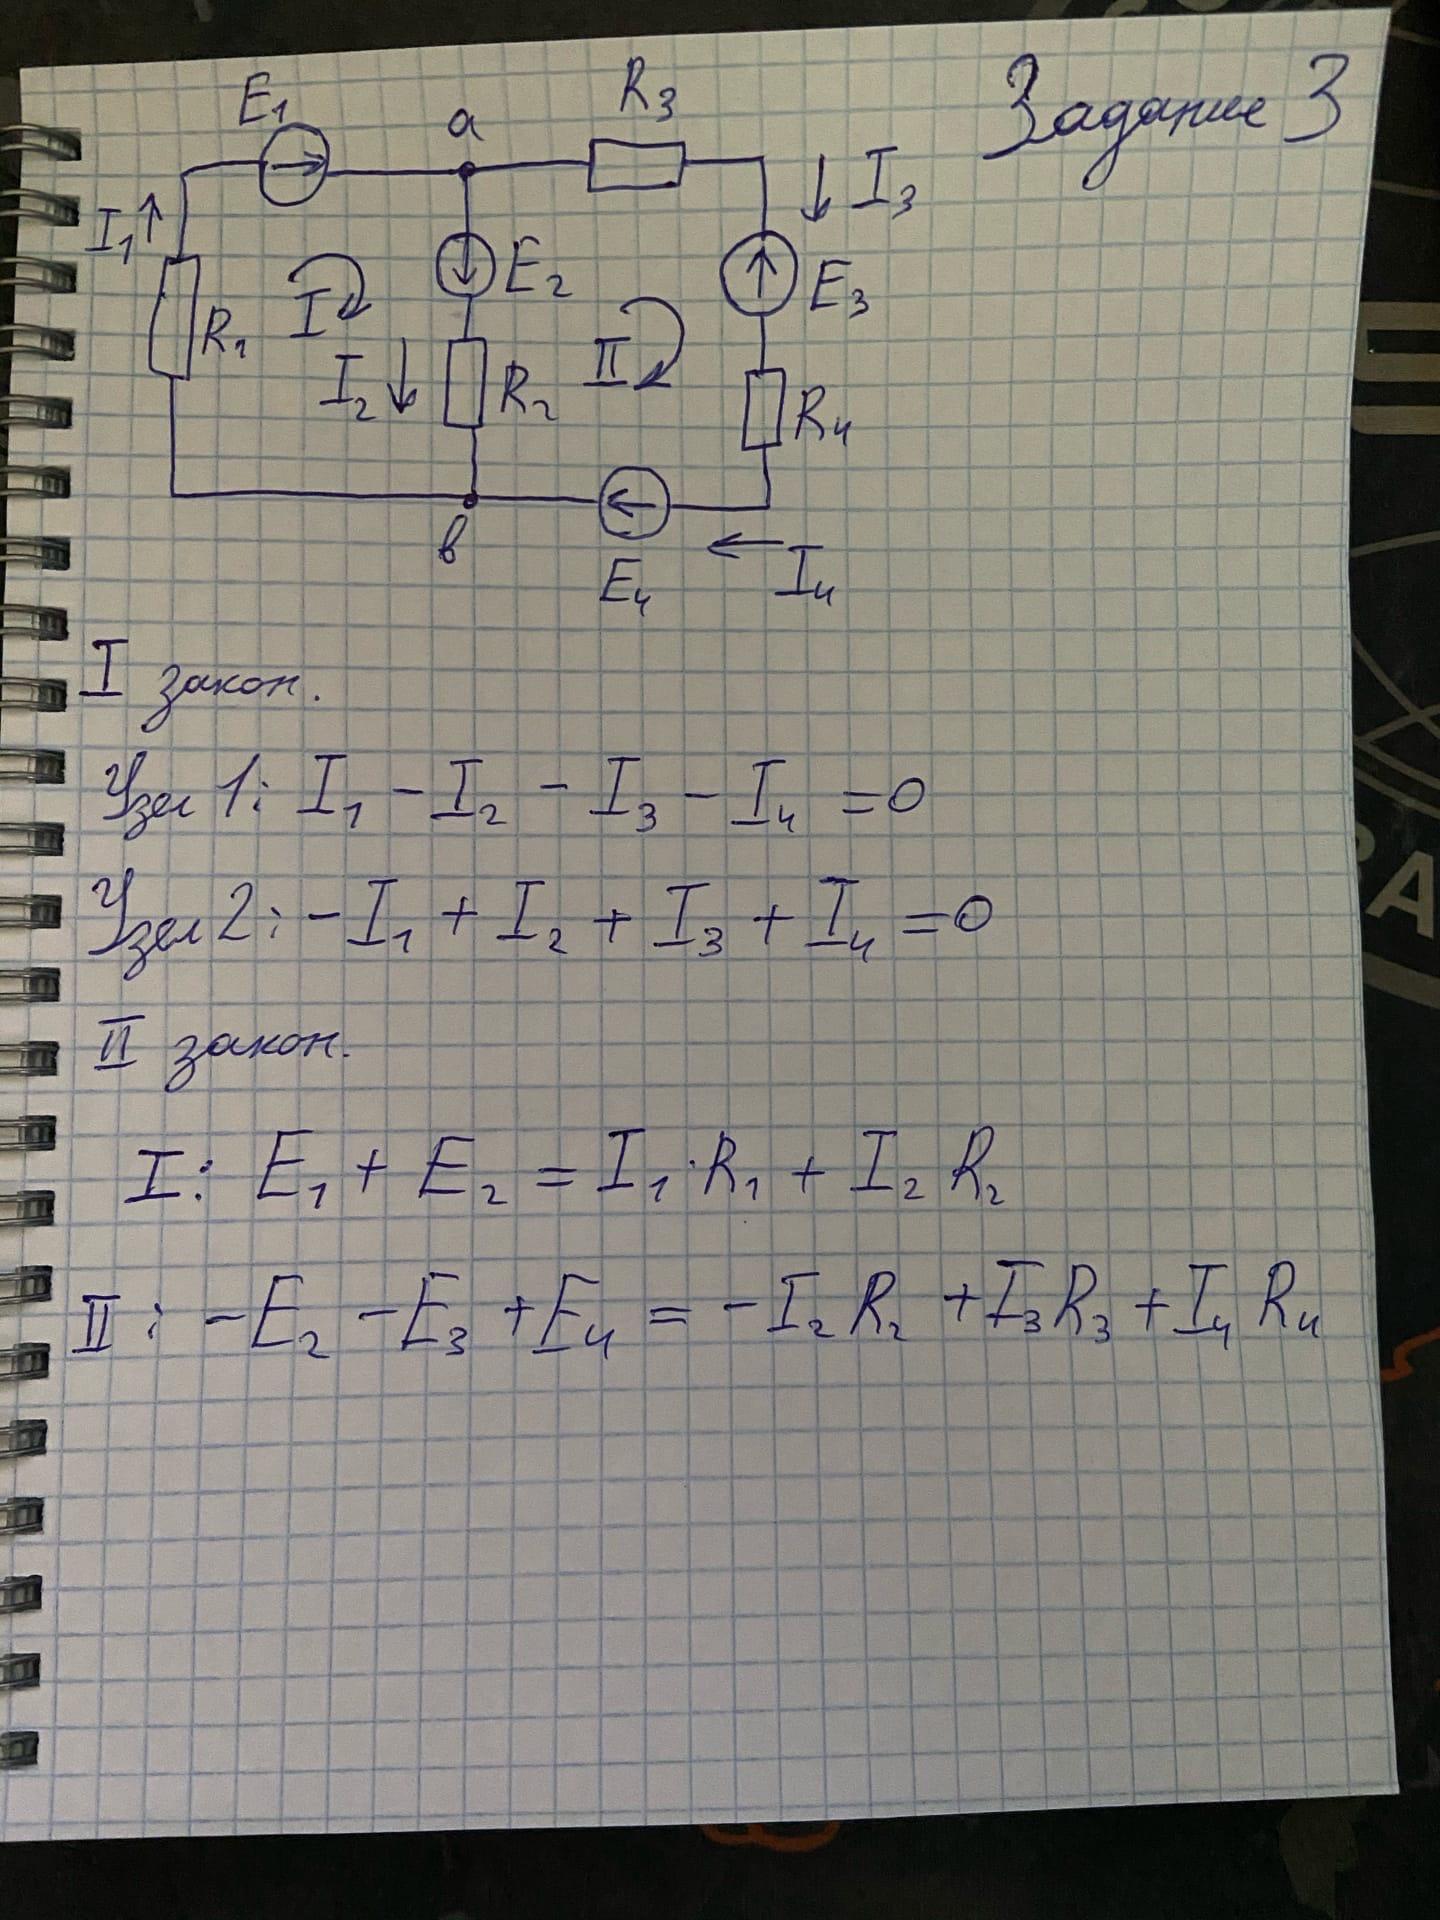 Задание 3
E₁
a
R₃
I₃
I₁
E₂
E₃
I
R₁
II
I₂
R₂
R₄
в
E₄
I₄
I закон.
Узел 1: I₁ - I₂ - I₃ - I₄ = 0
Узел 2: - I₁ + I₂ + I₃ + I₄ = 0
II закон.
I: E₁ + E₂ = I₁ · R₁ + I₂ R₂
II: -E₂ - E₃ + E₄ = - I₂ R₂ + I₃ R₃ + I₄ R₄